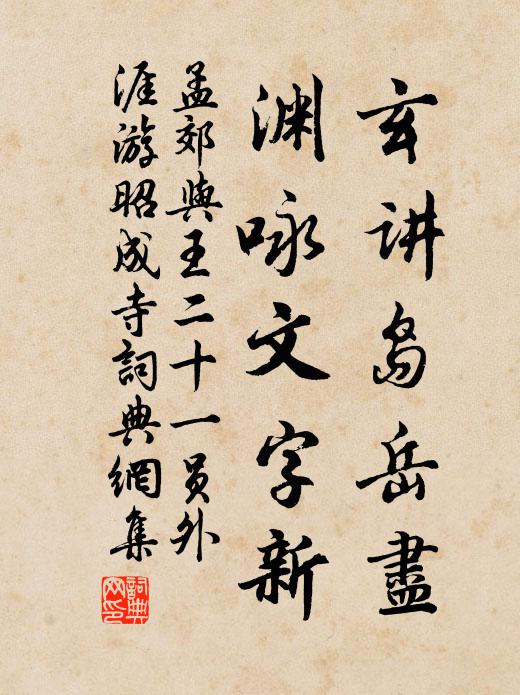 玄讲岛岳盡
渊咏文字新
孟郊與王二十一员外
涯游昭成寺詞典網集
詞典
网印